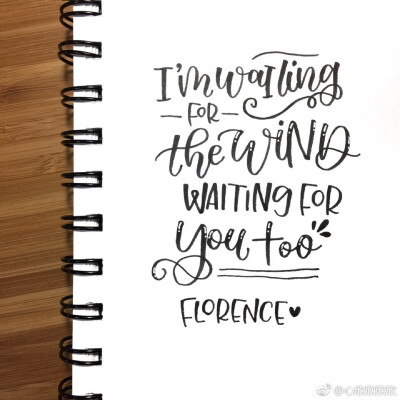 I'm waiting
- FOR -
the WIND
WAITING FOR
you too
FLORENCE